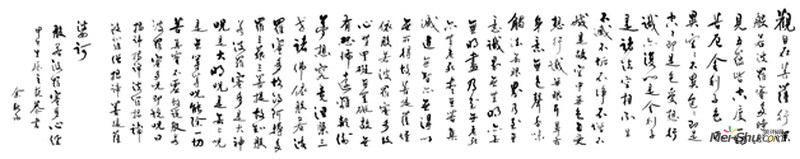 觀自在菩薩行深
般若波羅蜜多時照
見五蘊皆空度一切
苦厄舍利子色不
異空空不異色色即是
空空即是色受想行
識亦復如是舍利子
是諸法空相不生
不滅不垢不淨不增不
減是故空中無色無受
想行識無眼耳鼻舌
身意無色聲香味
觸法無眼界乃至無
意識界無無明亦無
無明盡乃至無老死
亦無老死盡無苦集
滅道無智亦無得以
無所得故菩提薩埵
依般若波羅蜜多故
心無罣礙無罣礙故無
有恐怖遠離顛倒
夢想究竟涅槃三
世諸佛依般若波
羅蜜多故得阿耨多
羅三藐三菩提故知般
若波羅蜜多是大神
咒是大明咒是無上咒
是無等等咒能除一切
苦真實不虛故說般若
波羅蜜多咒即說咒曰
揭諦揭諦波羅揭諦
波羅僧揭諦菩提薩
婆訶
般若波羅蜜多心經
Mei-Shu.com